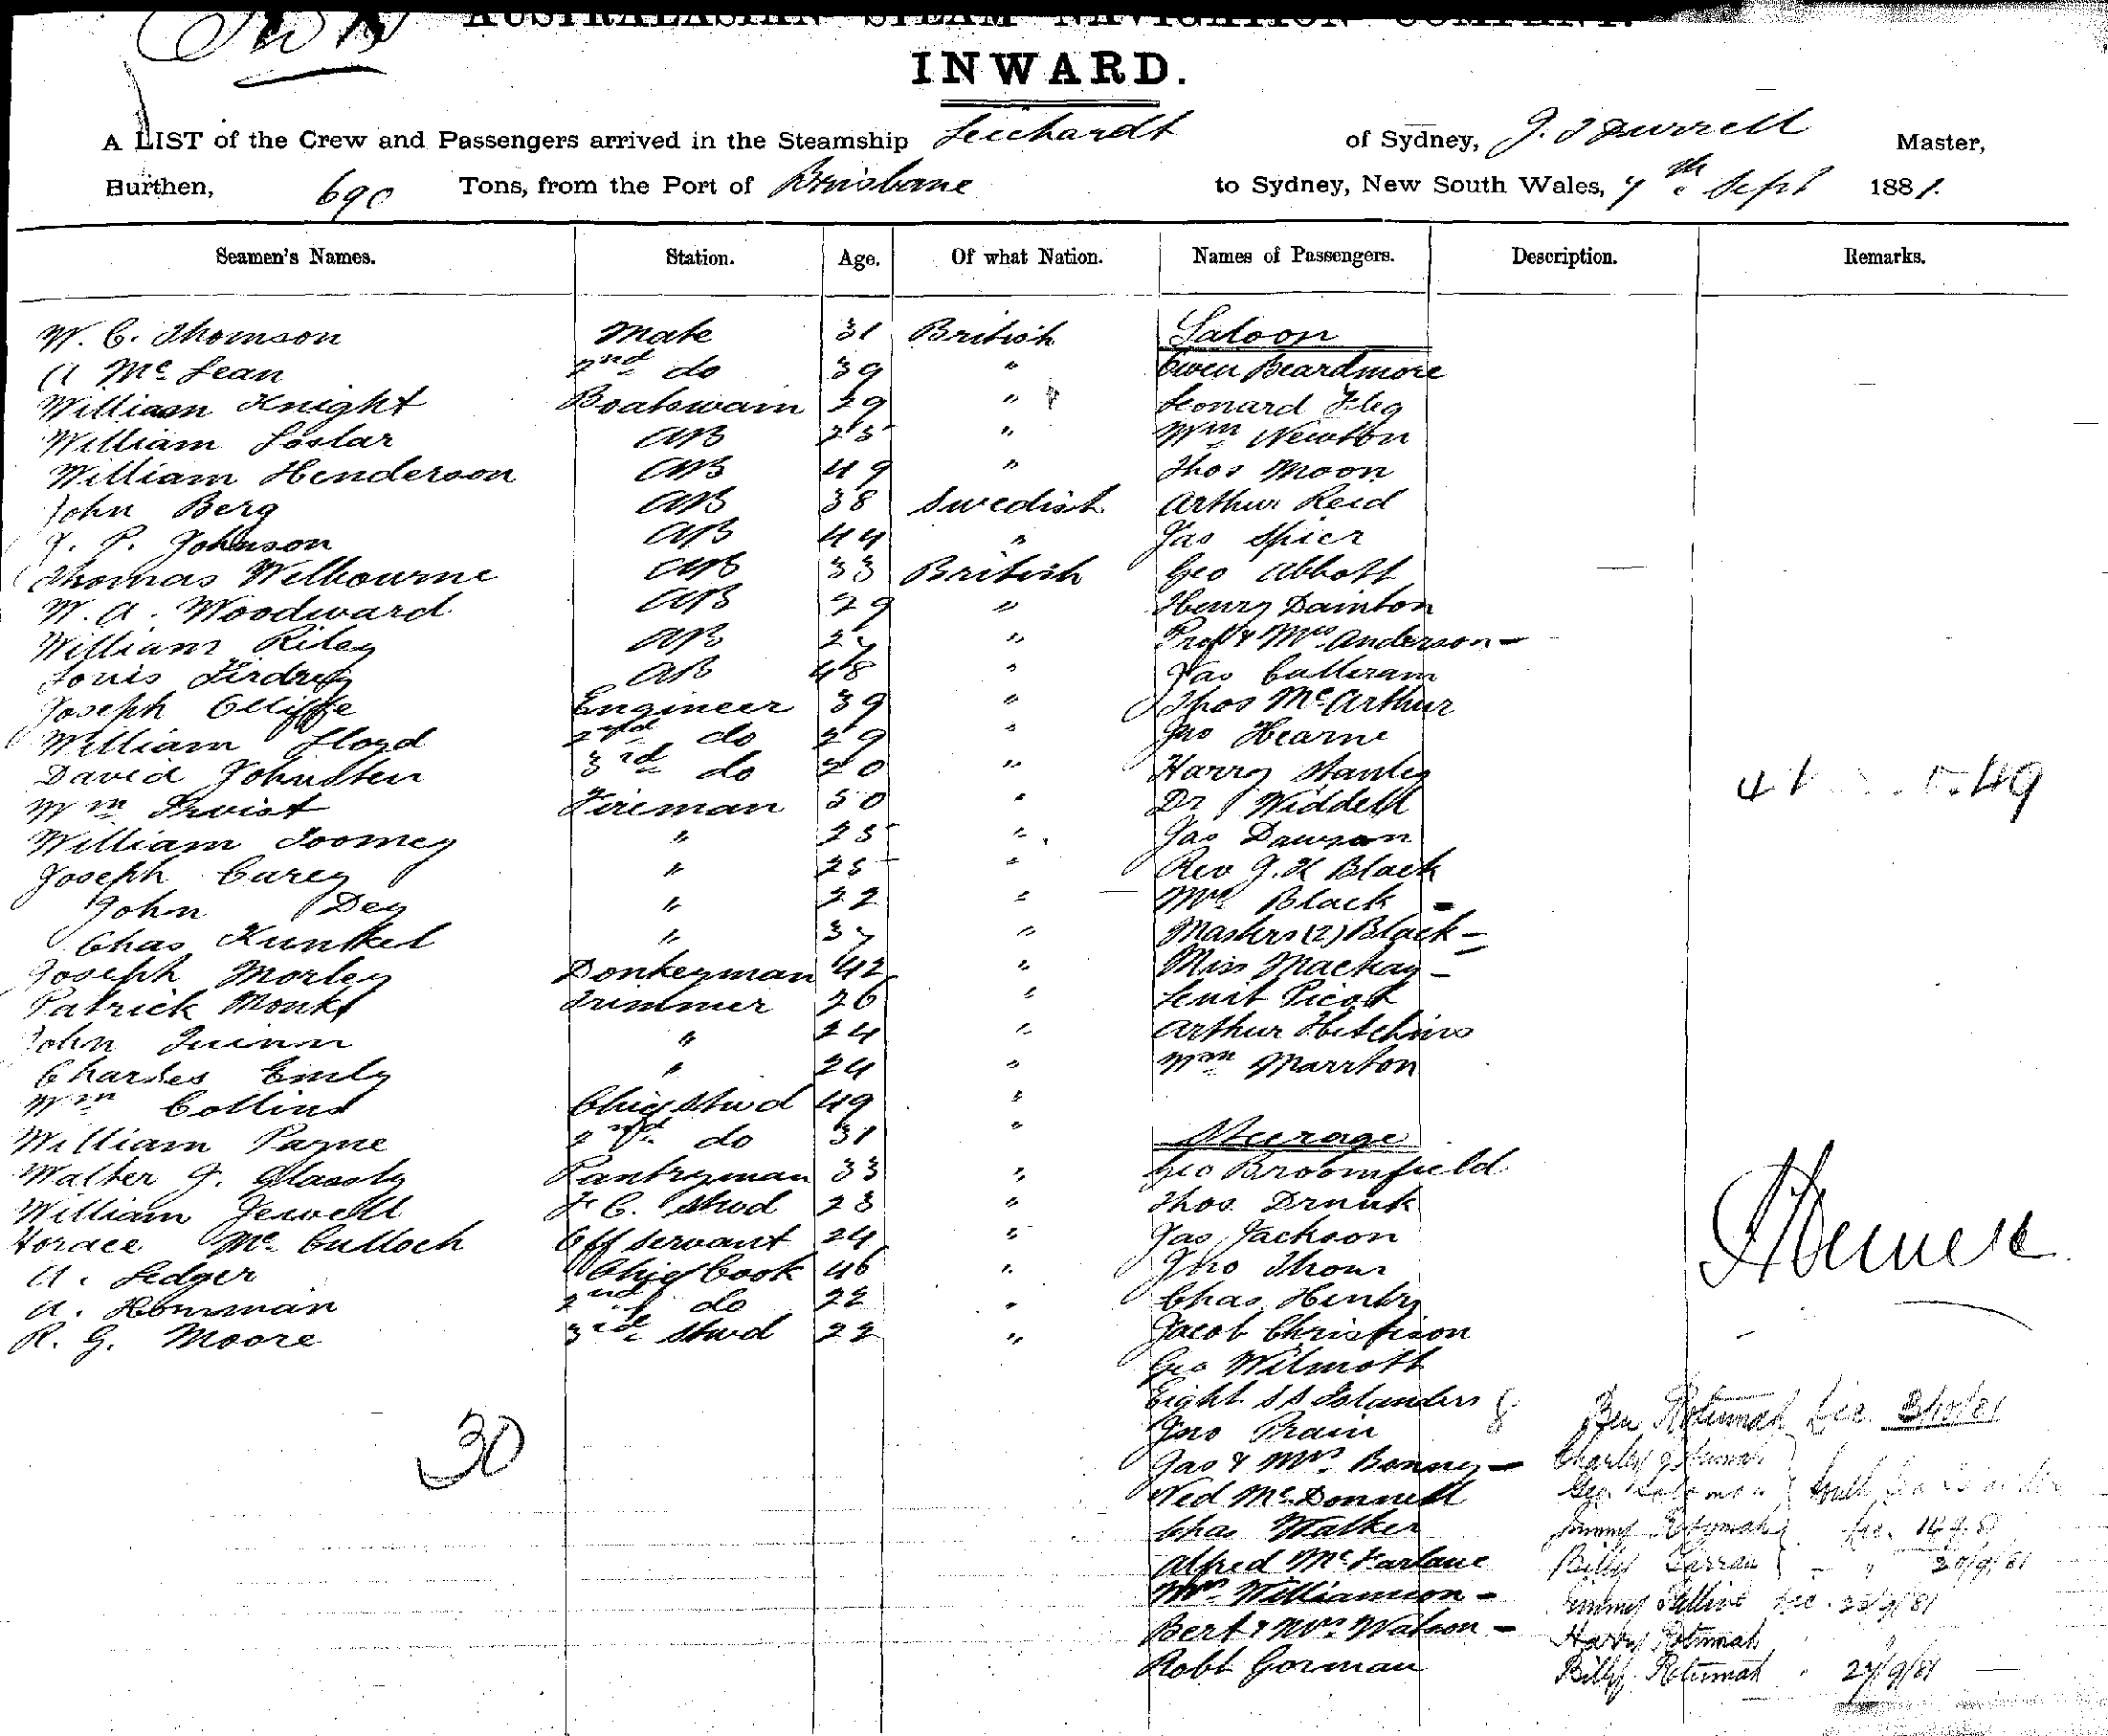 AUSTRALASIAN STEAM NAVIGATION COMPANY.
INWARD.
A LIST of the Crew and Passengers arrived in the Steamship Leichardt of Sydney, Master,
Burthen, 690 Tons, from the Port of Brisbane to Sydney, New South Wales, 7th Sept 1881.
Seamen's Names. Station. Age. Of what Nation. Names of Passengers. Description. Remarks.
W. C. Thomson Mate 31 British Saloon
A McLean 2nd do 39 " Owen Beardmore
William Knight Boatswain 29 " Leonard
William AB 25 " Wm Newton
William Henderson AB 49 " Thos Moon
John Berg AB 38 Swedish Arthur Reid
J. P. Johnson AB 44 " Jas Spier
Thomas Welbourne AB 33 British Geo Abbott
W. A. Woodward AB 29 " Henry Dainton
William Riley AB 27 " Prof & Mrs Anderson -
Louis AB 48 " Jas
Joseph Engineer 39 " Thos McArthur
William Lloyd 2nd do 29 " Jno Hearne
David Johnston 3rd do 20 " Harry Stanley
Wm Fireman 50 " Dr Widdell
William Toomey " 25 " Jas Dawson
Joseph Carey " 25 " Rev J. K Black
John Dey " 22 " Mrs Black -
Chas Kunkel " 37 " Masters (2) Black -
Joseph Morley Donkeyman 42 " Miss Mackay -
Patrick Monks Trimmer 26 " Picot
John Quinn " 24 " Arthur Hitchins
Charles Emly " 24 " Wm Marrton
Wm Collins Chief Stwd 49 "
William Payne 2nd do 31 " Steerage
Walter J. Pantryman 33 " Geo Broomfield
William Jewell F C. Stwd 23 " Thos
Horace McCulloch Off servant 24 " Jas Jackson
A. Ledger Chief Cook 46 " Jno Thom
A. 2nd do 22 " Chas Henty
R. G. Moore 3rd Stwd 22 " Jacob Christison
Geo Wilmott
Eight S S Islanders 8 Ben Rotumah Lic. 3/10/81
30 Jno Prain Charley Rotumah
Jas & Mrs. Bonney - Geo Solomon South Sea Islander
Ned McDonnell Jimmy Rotumah Lic. 14.9.81
Chas Walker Billy " 20/9/81
Alfred McFarlane
Mrs Williamson - Jimmy Lic.
Bert & Mrs Watson - Harry Rotumah
Robt Gorman Billy Rotumah " 27/9/81